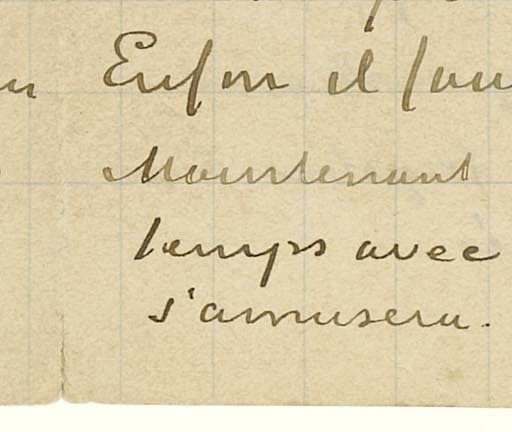 Enfin il fau
Maintenant
temps avec
s'amusera.